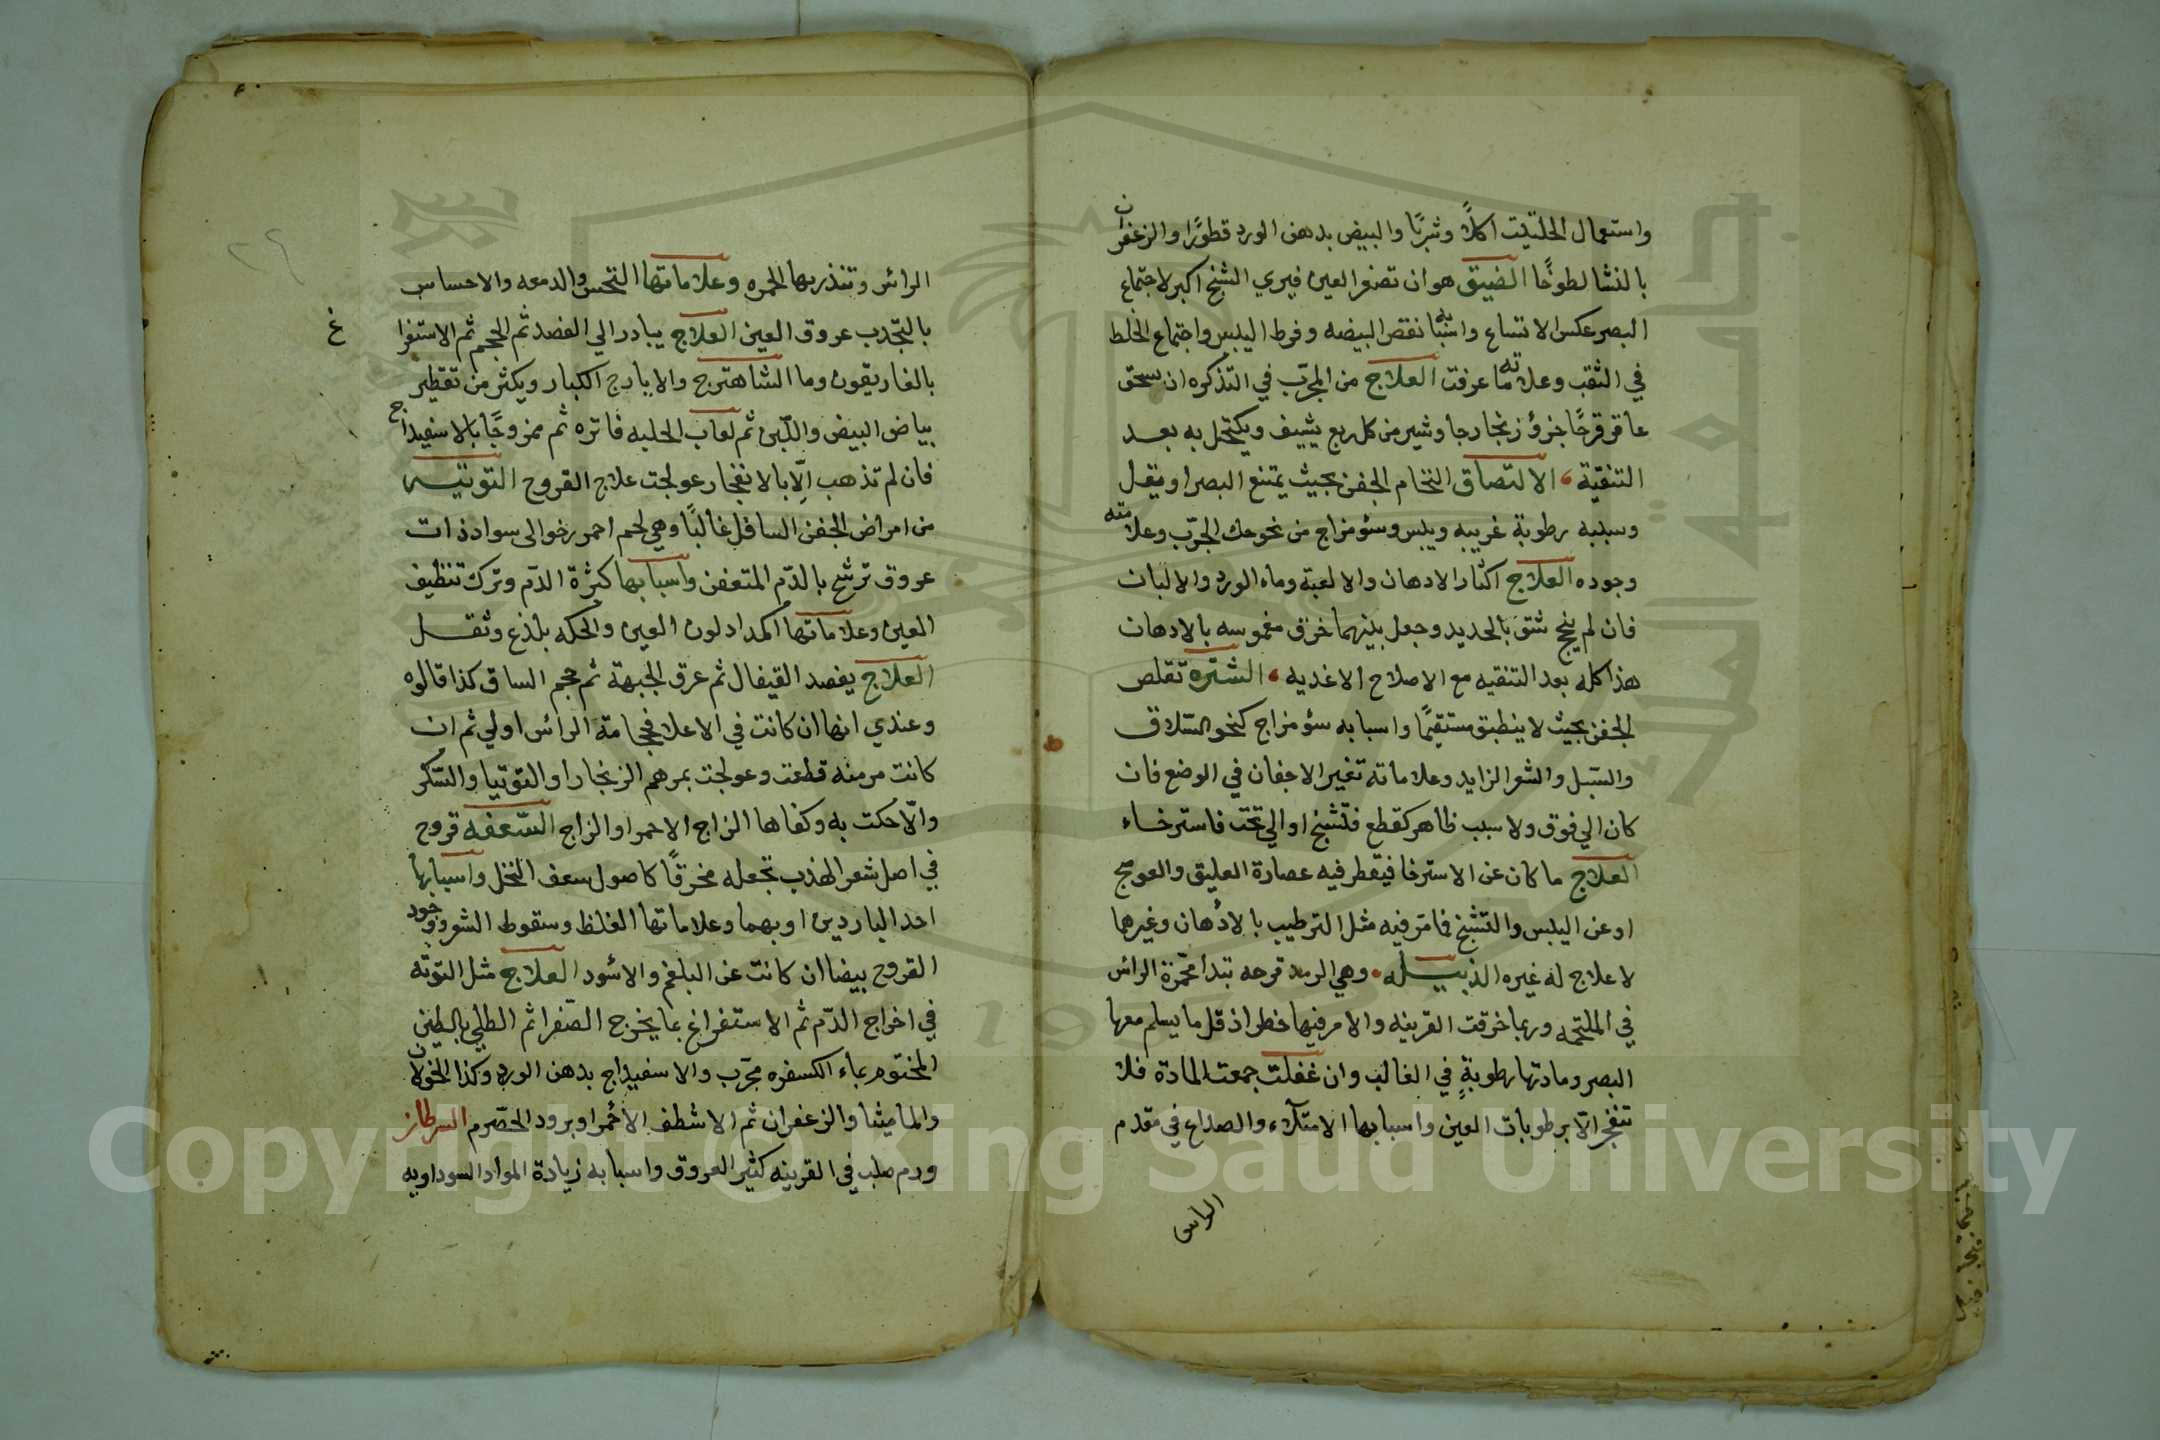 واستعمال الحلتيت اكلاً وشربًا والبيض بدهن الورد قطورًا والزعفران
بالنشا لطوخًا الضيق هو ان تصغر العين فيري الشبح اكبر لاجتماع
البصر عكس الاتساع واسبابه نقص البيضه وفرط اليبس واجتماع الخلط
في الثقب وعلاماته ما عرفت العلاج من المجرّب في التذكره ان يسحق
عاقر قرحًا جزؤ زنجار جاوشير من كل ربع يشيف ويكتحل به بعد
التنقية الالتصاق التحام الجفن بحيث يمتنع البصر او يقل
وسببه رطوبة غريبه ويبس وسئو مزاج من نحو حك الجرّب وعلامته
وجوده العلاج اكثار الادهان والالعبة وماء الورد والالبان
فان لم ينجح شتق بالحديد وجعل بينهما خرق مغموسه بالادهان
هذا كله بعد التنقيه مع الاصلاح الاغديه الشتره تقلص
الجفن بحيث لا ينطبق مستقيمًا واسبابه سئو مزاج كنحو السّلاق
والسّبل والشعر الزايد وعلاماته تغير الاجفان في الوضع فان
كان الي فوق ولا سبب ظاهر كقطع فتشنج او الي تحت فاسترخاء
العلاج ما كان عن الاسترخا فيقطر فيه عصارة العليق والعوسج
او عن اليبس والتشنج فا مرّ فيه مثل الترطيب بالادهان وغيرها
لا علاج له غيره الذبيله وهي الرمد قرحه تبدا محمّرة الرائس
في الملتحمه وربما خرقت القرينه والامر فيها خطر اذ قل ما يسلم معها
البصر ومادتها رطوبةٍ في الغالب وان غفلت جمعت المادة فلا
تنفجر الّا برطوبات العين واسبابها الامتلاء والصداع في مقدم
الراس
الرائس وتنذر بها الحمره وعلاماتها النخس والدمعه والاحساس
بالتجّدب عروق العين العلاج يبادر الي الفصد ثم الحجم ثم الاستفراغ
بالغاريقون وما الشاهترج والايارج الكبار ويكثر من تقطير
بياض البيض واللّبن ثم لعاب الحلبه فاتره ثم ممزوجًا بالاسفيداج
فان لم تذهب الّا بالانفجار عولجت علاج القروح التوتيه
من امراض الجفن السافل غالبًا وهي لحم احمر رخو الى سواد ذات
عروق ترشح بالدّم المتعفن واسبابها كثرة الدّم وترك تنظيف
العين وعلاماتها اكمداد لون العين والحكه بلذع وثقل
العلاج يفصد القيفال ثم عرق الجبهة ثم حجم الساق كذا قالوه
وعندي انها ان كانت في الاعلا فحجامة الرائس اولي ثم ان
كانت مزمنه قطعت وعولجت بمرهم الزنجار او التوتيا والسّكر
والّا حكت به وكفاها الزاج الاحمر او الزاج السّعفه قروح
في اصل شعر الهذب تجعله مخرقًا كاصول سعف النخل واسبابها
احد الباردين او بهما وعلاماتها الغلظ وسقوط الشعر ووجود
القروح بيضا ان كانت عن البلغم والا سود العلاج مثل التوته
في اخراج الدّم ثم الاستفراغ بما يخرج الصّفرا ثم الطلي بالطين
المختوم بماء الكسفره مجرّب والاسفيداج بدهن الورد وكذا الخولان
والماميثا والزعفران ثم الاشطف الاحمر او برود الحصرم السرطان
ورم صلب في القرينه كثير العروق واسبابه زيادة المواد السوداويه
Copyright © King Saud University